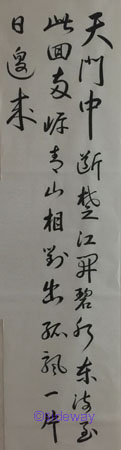 天門中斷楚江開碧水東流至
此回兩岸青山相對出孤帆一片
日邊来